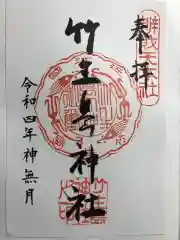 奉拝
竹生島神社
令和四年神無月